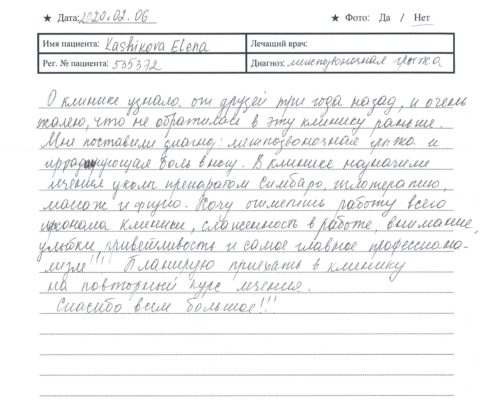 ★ Дата: 2020.02.06 ★ Фото: Да / Нет
Имя пациента: Kashikova Elena Лечащий врач:
Рег. № пациента: 535372 Диагноз: межпозвоночная грыжа
О клинике узнала от друзей три года назад, и очень
жалею, что не обратилась в эту клинику раньше.
Мне поставили диагноз: межпозвоночная грыжа и
иррадиирующая боль в ногу. В клинике назначили
лечение уколы препаратом Симбаро, иглотерапию,
массаж и физио. Хочу отметить работу всего
персонала клиники, слаженность в работе, внимание,
улыбки, приветливость и самое главное профессиона-
лизм!!!! Планирую приехать в клинику
на повторный курс лечения.
Спасибо всем большое!!!